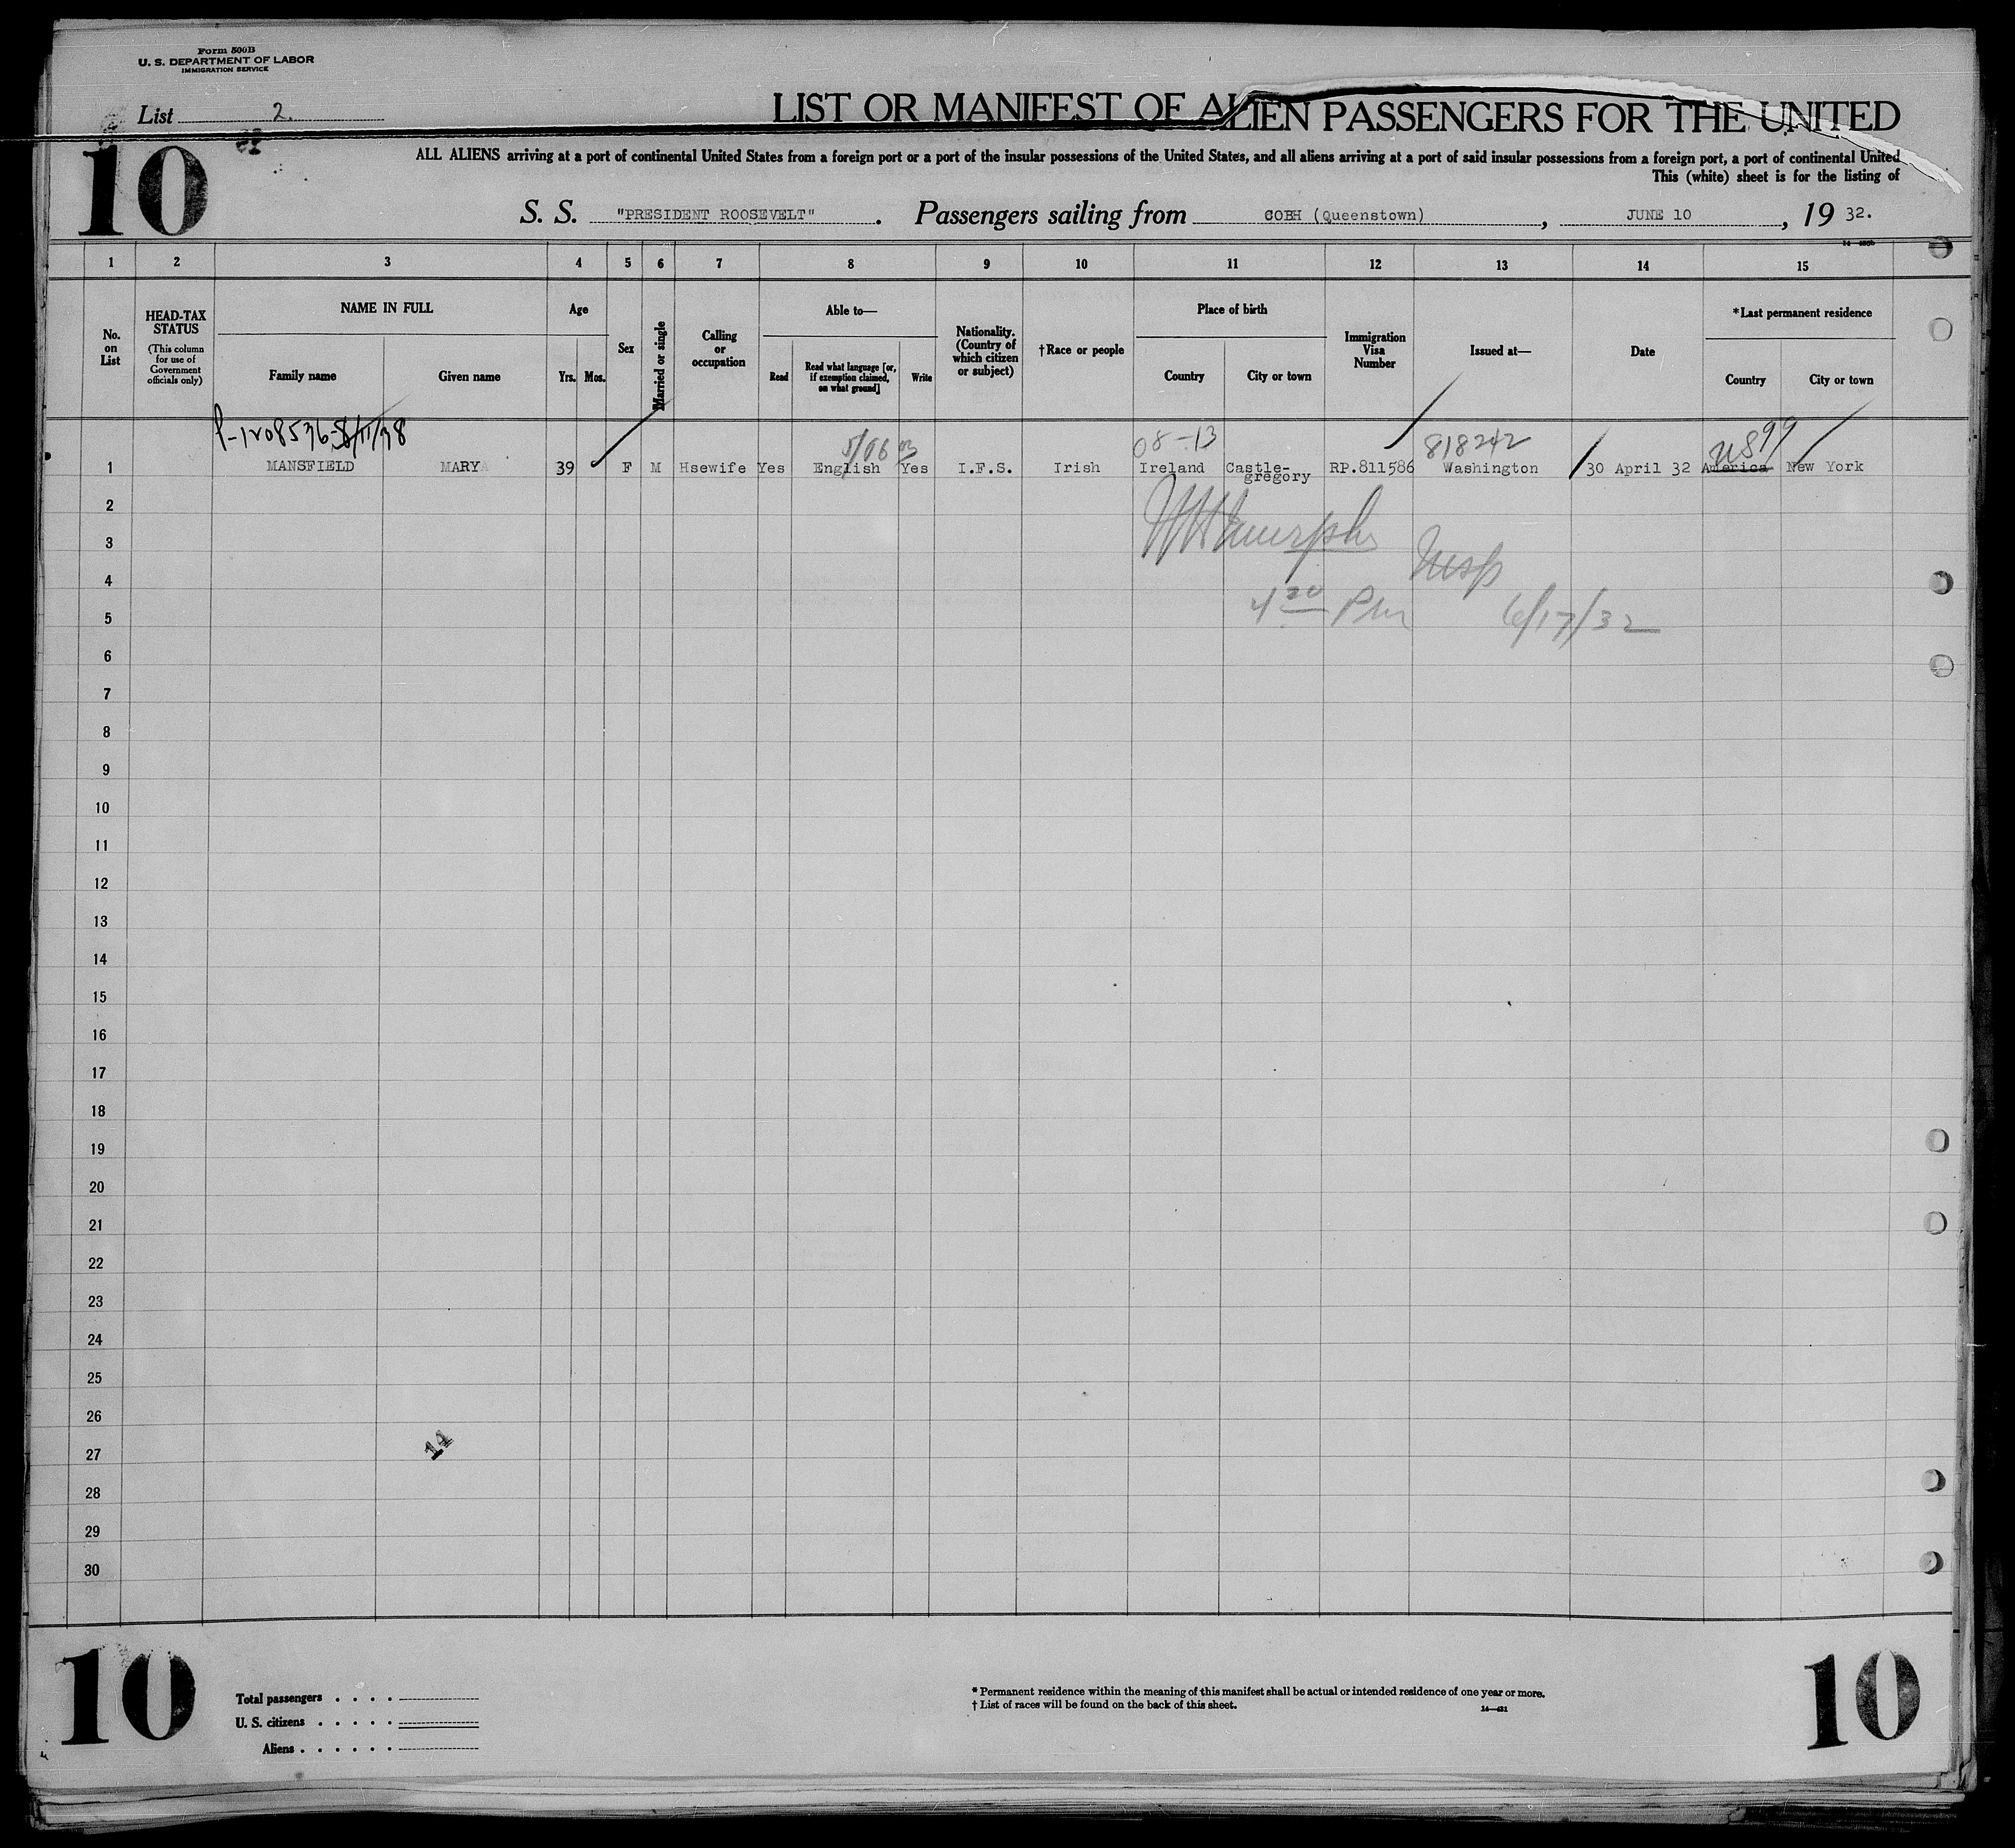 Form 500B
U. S. DEPARTMENT OF LABOR
IMMIGRATION SERVICE
List 2.
LIST OR MANIFEST OF ALIEN PASSENGERS FOR THE UNITED
10
ALL ALIENS arriving at a port of continental United States from a foreign port or a port of the insular possessions of the United States, and all aliens arriving at a port of said insular possessions from a foreign port, a port of continental United
This (white) sheet is for the listing of
S. S. "PRESIDENT ROOSEVELT". Passengers sailing from COBH (Queenstown), JUNE 10, 1932.
1 2 3 4 5 6 7 8 9 10 11 12 13 14 15
No. on List
HEAD-TAX STATUS
(This column for use of Government officials only)
NAME IN FULL
Family name Given name
Age
Yrs. Mos.
Sex
Married or single
Calling or occupation
Able to—
Read
Read what language [or, if exemption claimed, on what ground]
Write
Nationality. (Country of which citizen or subject)
†Race or people
Place of birth
Country City or town
Immigration Visa Number
Issued at—
Date
*Last permanent residence
Country City or town
08-13 818242 US 99
1 MANSFIELD MARY 39 F M Hsewife Yes English Yes I.F.S. Irish Ireland Castle-gregory RP.811586 Washington 30 April 32 America New York
2
3
Insp
4
4 20 Pm 6/17/32
5
6
7
8
9
10
11
12
13
14
15
16
17
18
19
20
21
22
23
24
25
26
14
27
28
29
30
10
Total passengers . . . .
U. S. citizens . . . . .
Aliens . . . . . .
* Permanent residence within the meaning of this manifest shall be actual or intended residence of one year or more.
† List of races will be found on the back of this sheet.
10